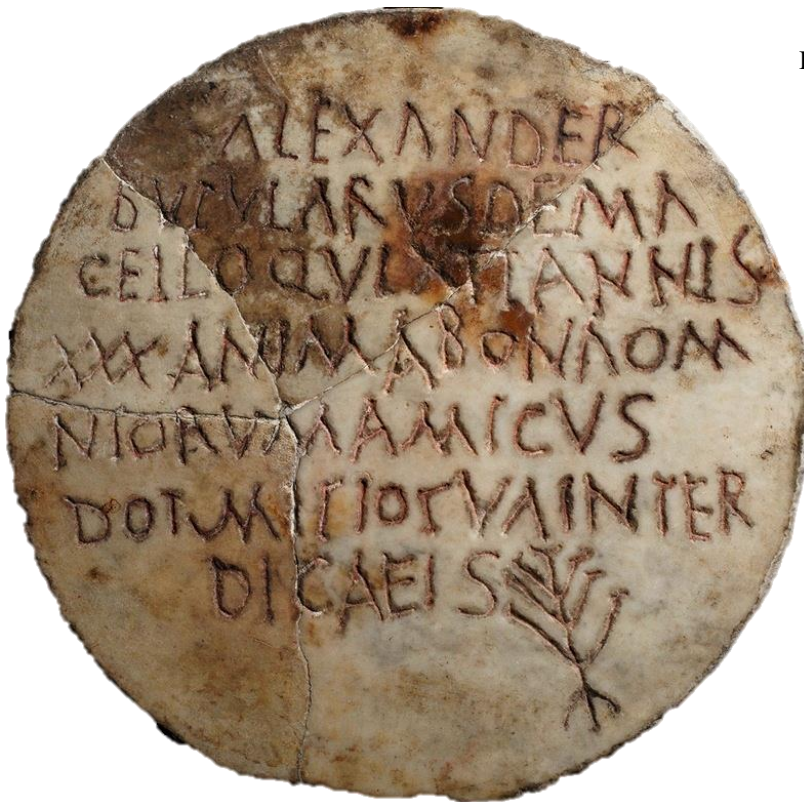 ALEXANDER
BVTVLARVS DE MA
CELLO QVI VIXIT ANNIS
XXX ANIMA BONA OM
NIORVM AMICVS
DOTMITIO TVA INTER
DICAEIS